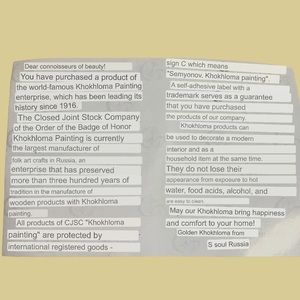 Dear connoisseurs of beauty!
You have purchased a product of
the world-famous Khokhloma Painting
enterprise, which has been leading its
history since 1916.
The Closed Joint Stock Company
of the Order of the Badge of Honor
Khokhloma Painting is currently
the largest manufacturer of
folk art crafts in Russia, an
enterprise that has preserved
more than three hundred years of
tradition in the manufacture of
wooden products with Khokhloma
painting.
All products of CJSC "Khokhloma
painting" are protected by
international registered goods -
sign C which means
"Semyonov. Khokhloma painting".
A self-adhesive label with a
trademark serves as a guarantee
that you have purchased
the products of our company.
Khokhloma products can
be used to decorate a modern
interior and as a
household item at the same time.
They do not lose their
appearance from exposure to hot
water, food acids, alcohol, and
are easy to clean.
May our Khokhloma bring happiness
and comfort to your home!
Golden Khokhloma from
S soul Russia